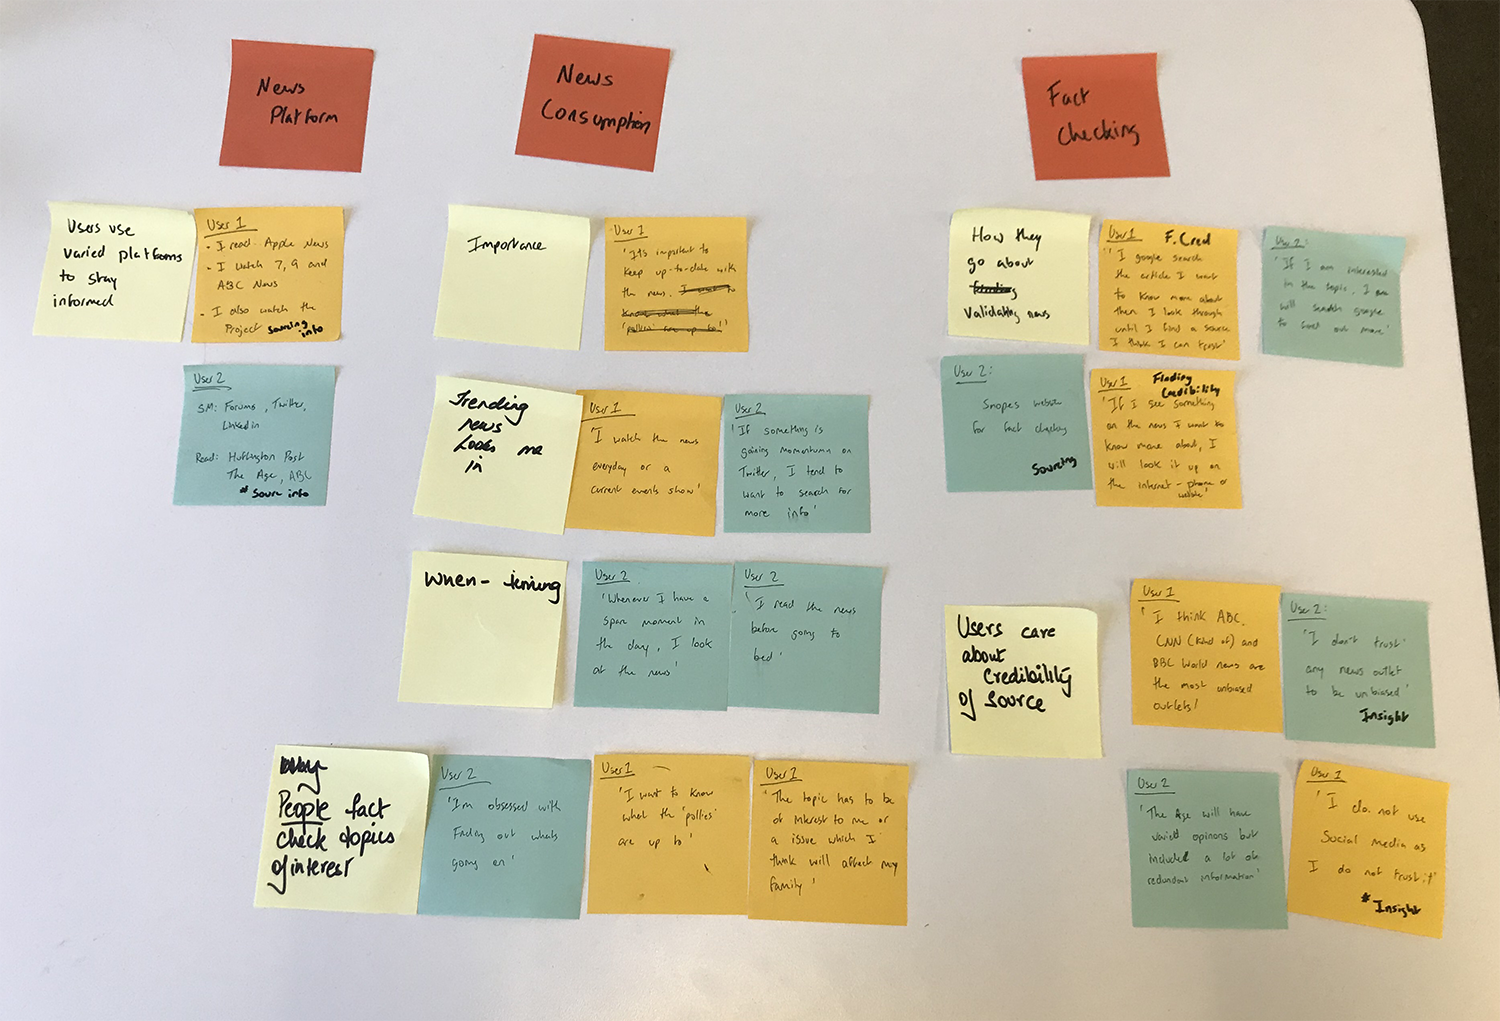 News
Platform
News
Consumption
Fact
Checking
Users use
varied platforms
to stay
informed
User 1
- I read Apple News
- I watch 7, 9 and
ABC News
- I also watch the
Project sourcing
info
User 2
SM: Forums, Twitter,
Linkedin
Read: Huffington Post
The Age, ABC
* Sourc info
Importance
User 1
'It's important to
keep up-to-date with
the news. I want to
know what the
'pollies' are up to!'
Trending
news
Looks me
in
User 1
'I watch the news
everyday or a
current events show'
User 2
'If something is
gaining momentum on
Twitter, I tend to
want to search for
more info'
When - timing
User 2
'Whenever I have a
spare moment in
the day, I look
at the news'
User 2
'I read the news
before going to
bed'
People fact
check topics
of interest
User 2
'I'm obsessed with
Finding out whats
going on'
User 1
'I want to know
what the 'pollies'
are up to'
User 1
'The topic has to be
of interest to me or
a issue which I
think will affect my
family'
How they
go about
validating news
User 1 F. Cred
'I google search
the article I want
to know more about
then I look through
until I find a source
I think I can trust'
User 2:
'If I am interested
in the topic, I
will search google
to find out more'
User 2:
Snopes website
for fact checking
Sourcing
User 1 Finding
Credibility
'If I see something
on the news I want to
know more about, I
will look it up on
the internet - phone or
website'
Users care
about
Credibility
of source
User 1
'I think ABC,
CNN (kind of) and
BBC World news are
the most unbiased
outlets'
User 2:
'I don't trust'
any news outlet
to be unbiased'
Insight
User 2
'The Age will have
varied opinons but
included a lot of
redundant information'
User 1
'I do not use
Social media as
I do not trust it'
* Insight